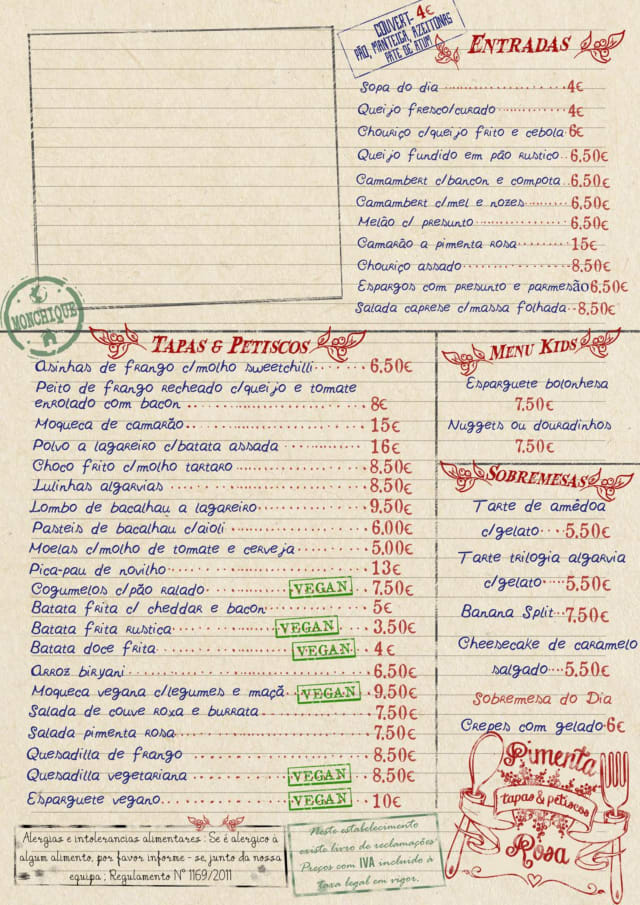 COUVERT- 4€
PÃO, MANTEIGA, AZEITONAS
PATE DE ATUM
ENTRADAS
Sopa do dia 4€
Queijo fresco/curado 4€
Chouriço c/queijo frito e cebola 6€
Queijo fundido em pão rustico 6,50€
Camambert c/bancon e compota 6,50€
Camambert c/mel e nozes 6,50€
Melão c/ presunto 6,50€
Camarão a pimenta rosa 15€
Chouriço assado 8,50€
Espargos com presunto e parmesão 6,50€
Salada caprese c/massa folhada 8,50€
MONCHIQUE
TAPAS & PETISCOS
Asinhas de frango c/molho sweetchilli 6,50€
Peito de frango recheado c/queijo e tomate
enrolado com bacon 8€
Moqueca de camarão 15€
Polvo a lagareiro c/batata assada 16€
Choco frito c/molho tartaro 8,50€
Lulinhas algarvias 8,50€
Lombo de bacalhau a lagareiro 9,50€
Pasteis de bacalhau c/aioli 6,00€
Moelas c/molho de tomate e cerveja 5,00€
Pica-pau de novilho 13€
Cogumelos c/pão ralado VEGAN 7,50€
Batata frita c/ cheddar e bacon 5€
Batata frita rustica VEGAN 3,50€
Batata doce frita VEGAN 4€
Arroz biryani 6,50€
Moqueca vegana c/legumes e maçã VEGAN 9,50€
Salada de couve roxa e burrata 7,50€
Salada pimenta rosa 7,50€
Quesadilla de frango 8,50€
Quesadilla vegetariana VEGAN 8,50€
Esparguete vegano VEGAN 10€
MENU KIDS
Esparguete bolonhesa
7,50€
Nuggets ou douradinhos
7,50€
SOBREMESAS
Tarte de amêdoa
c/gelato 5,50€
Tarte trilogia algarvia
c/gelato 5,50€
Banana Split 7,50€
Cheesecake de caramelo
salgado 5,50€
Sobremesa do Dia
Crepes com gelado 6€
Pimenta
tapas & petiscos
Rosa
Alergias e intolerancias alimentares : Se é alergico à
algum alimento, por favor informe - se, junto da nossa
equipa ; Regulamento Nº 1169/2011
Neste estabelecimento
existe livro de reclamações
Preços com IVA incluido à
taxa legal em vigor.